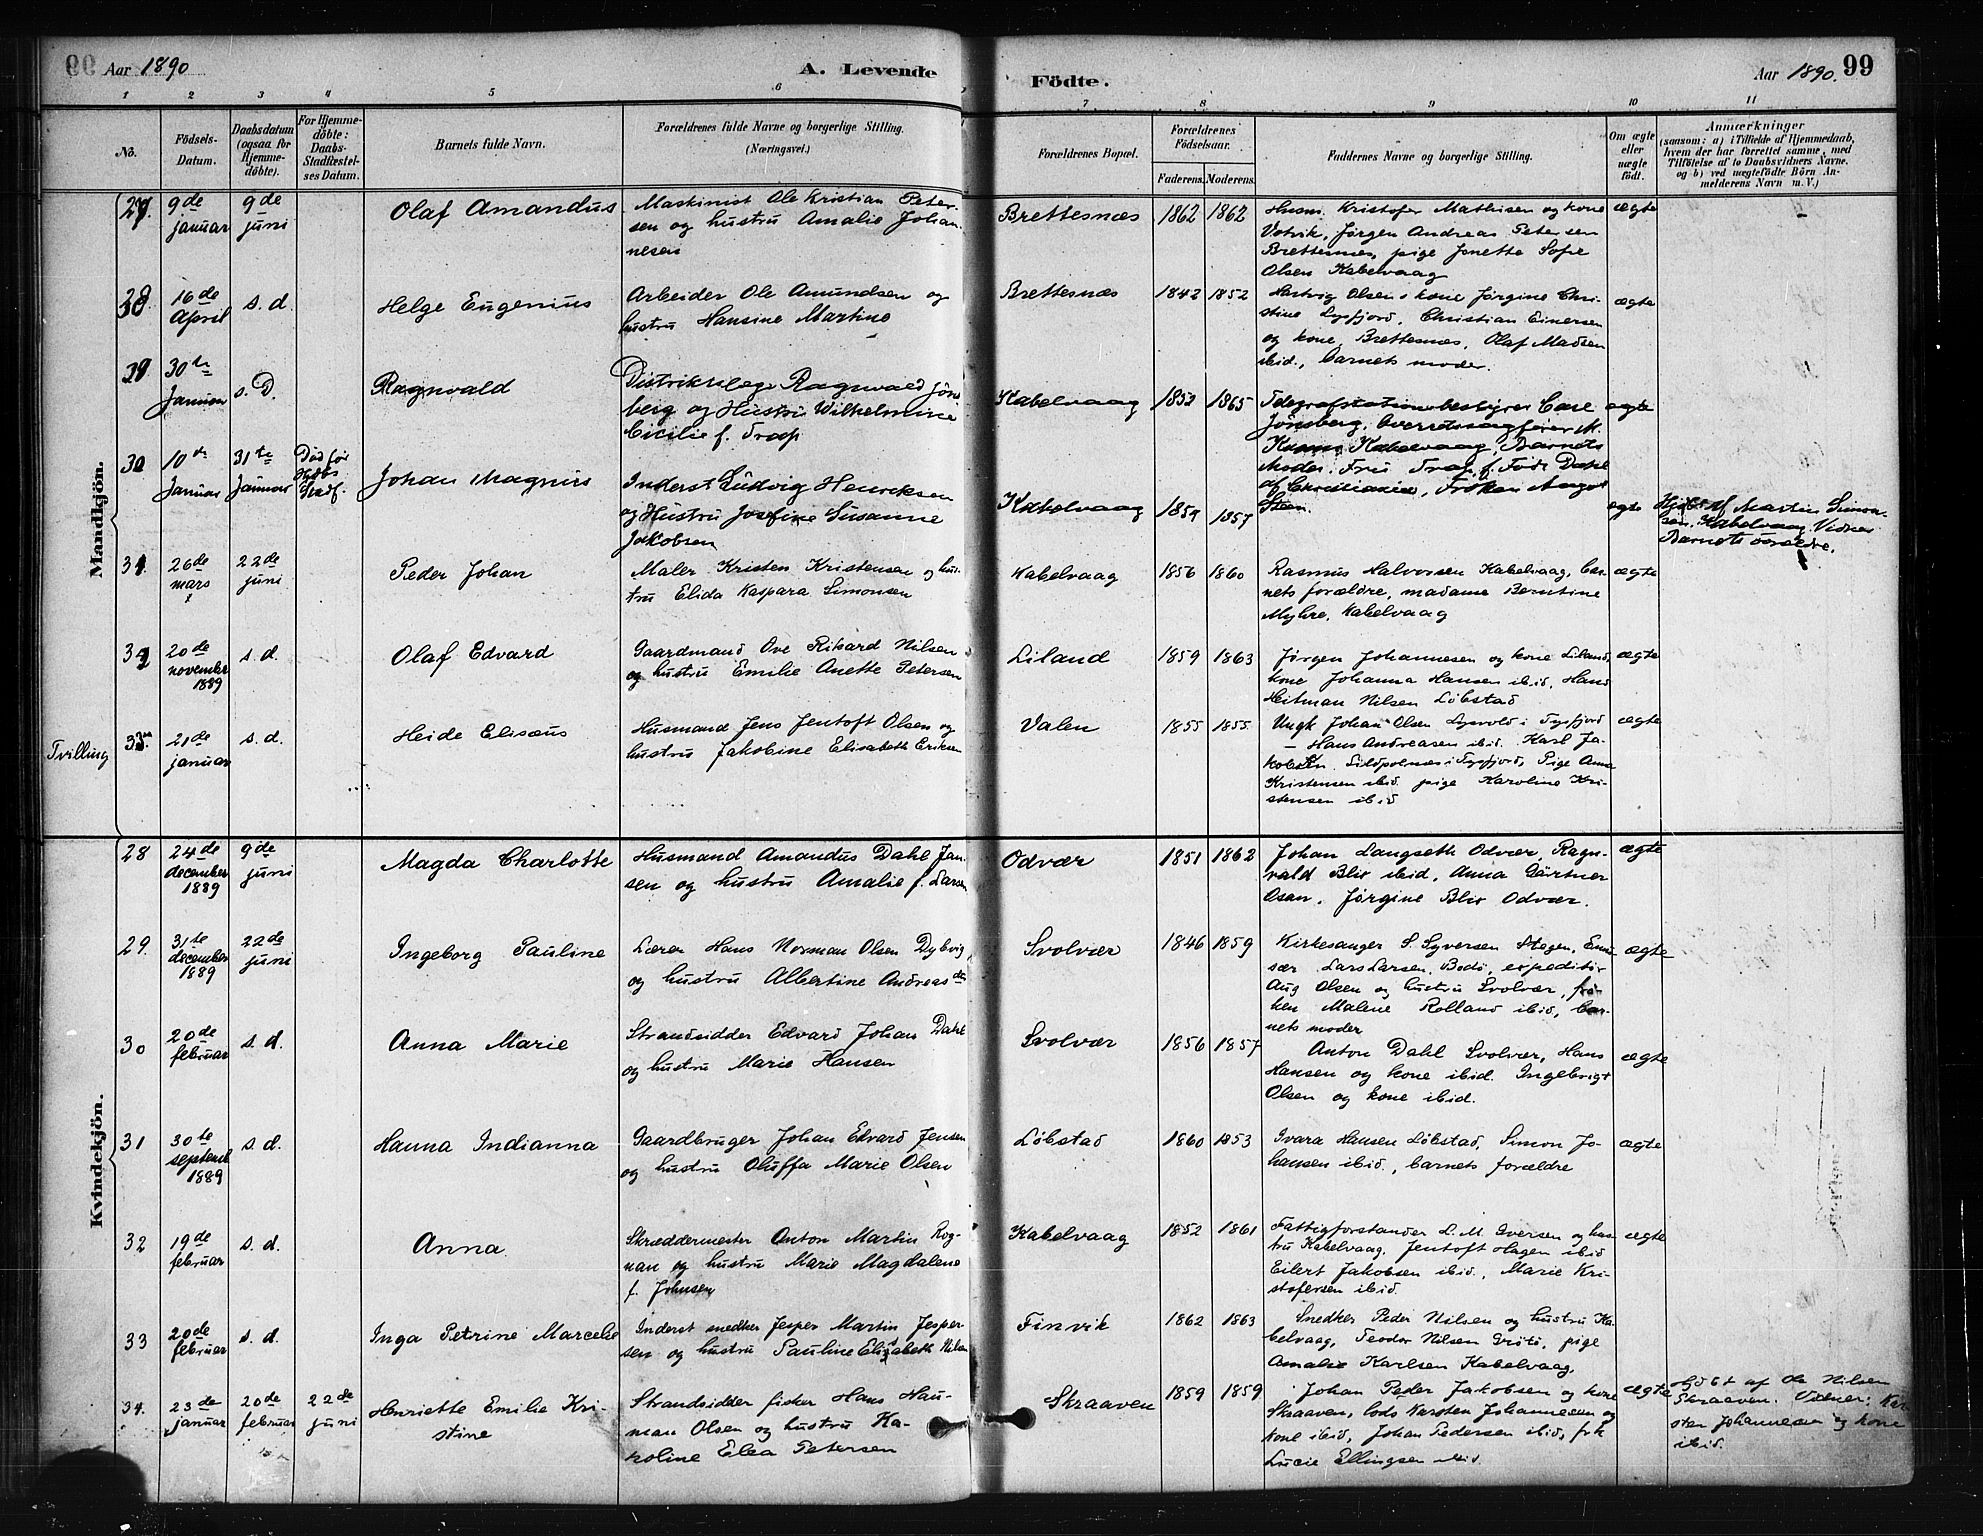 Aar 1890
A. Levende
Födte.
Aar 1890.
99
1 2 3 4 5 6 7 8 9 10 11
No.
Födsels-Datum.
Daabsdatum (ogsaa for Hjemme-döbte).
For Hjemme-döbte: Daabs-Stadfæstel-ses Datum.
Barnets fulde Navn.
Forældrenes fulde Navne og borgerlige Stilling. (Næringsvei.)
Forældrenes Bopæl.
Forældrenes Födselsaar.
Faderens. Moderens.
Faddernes Navne og borgerlige Stilling.
Om ægte eller uægte födt.
Anmærkninger
(saasom: a) i Tilfælde af Hjemmedaab, hvem der har forrettet samme, med Tilföielse af to Daabsvidners Navne. og b) ved uægtefödte Börn An-melderens Navn m. V.)
Mandkjön.
27. 9de januar 9de juni Olaf Amandus
Maskinist Ole Kristian Peter-
sen og hustru Amalie Johan-
nesen
Brettesnæs 1862 1862
Husm. Kristofer Mathisen og kone
Votvik, Jørgen Andreas Petersen
Brettesnæs, pige Jonette Sofie
Olsen Kabelvaag
ægte
28 16de April s. d. Helge Eugenius
Arbeider Ole Amundsen og
hustru Hansine Martine
Brettesnæs 1842 1852
Hartvig Olsen o kone Jørgine Chri-
stine Lysfjord, Christian Einersen
og kone, Brettesnæs, Olaf Madsen
ibid., barnets moder.
ægte
29 30te Januar s. D. Ragnvald
Distriktslæge Ragnvald Jöns
berg og Hustru Wilhelmine
Cicilie f. Trap
Kabelvaag 1853 1865
Telegrafstationsbestyrer Carl
Jönsberg, Overretssagfører M.
Kabelvaag, Barnets
Moder, Fru Trap, f. Född Dahl
af Christiania, Frøken
Steen.
ægte
30 10de Januar 31te Januar Död för Stadf. Johan Magnus
Inderst Ludvig Henriksen
og Hustru Josefine Susanne
Jakobsen
Kabelvaag 1859 1857
ægte
Hjdbt af Martin Simon-
sen, Kabelvaag Vidner
Barnets forældre.
31. 26de mars 22de juni Peder Johan
Maler Kristen Kristensen og hus-
tru Elida Kaspara Simonsen
Kabelvaag 1856 1860
Rasmus Halvorsen Kabelvaag, bar-
nets forældre, madame Berntine
Myhre, Kabelvaag
ægte
32 20de november 1889 s. d. Olaf Edvard
Gaardmand Ove Rikard Nilsen
og hustru Emilie Anette Petersen
Liland 1859 1863
Jørgen Johannesen og kone Liland,
kone Johanna Hansen ibid, Hans
Hitman Nilsen Löbstad
ægte
Tvilling
33. 21de januar s. d. Heide Elisæus
Husmand Jens Jentoft Olsen og
hustru Jakobine Elisabeth Eriksen
Valen 1855 1855.
Ungk Johan Olsen i Tysfjord
— Hans Andreasen ibid. Karl Ja-
kobsen i Tysfjord, Pige Anna
Kristensen ibid. pige Karoline Kri-
stensen ibid
ægte
Kvindekjön.
28 24de december 1889 9de juni Magda Charlotte
Husmand Amandus Dahl Jan-
sen og hustru Amalie f. Larsen
Odvær 1851 1862
Johan Langseth Odvær, Ragn-
vald Blix ibid, Anna Gärtner
Osan, Jørgine Blix Odvær.
ægte
29. 31te december 1889 22de juni Ingeborg Pauline
Lærer Hans Norman Olsen Dybvig,
og hustru Albertine Andreasdr
Svolvær 1846 1859
Kirkesanger S. Syversen Stegen, Emis-
sær Lars Larsen, Bodö, expeditör
Aug Olsen og hustru Svolvær, frö-
ken Malene Rolland ibid, bar-
nets moder
ægte
30 20de februar s. d. Anna Marie
Strandsidder Edvard Johan Dahl
og hustru Marie Hansen
Svolvær 1856 1857
Anton Dahl Svolvær, Hans
Hansen og kone ibid. Ingebrigt
Olsen og kone ibid.
ægte
31 30te septemb 1889 s. d. Hanna Indianna
Gaardbruger Johan Edvard Jensen
og hustru Oluffa Marie Olsen
Löbstad 1860 1853
Ivara Hansen Löbstad, Simon Jo-
hansen ibid., barnets forældre
ægte
32 19de februar s. d. Anna
Skræddermester Anton Martin Rog-
nan og hustru Marie Magdalene
f. Johnsen
Kabelvaag 1852 1861
Fattigforstander L. M. Iversen og hus-
tru Kabelvaag. Jentoft Hagen ibid
Eilert Jakobsen ibid., Marie Kri-
stofersen ibid.
ægte
33 20de februar s. d. Inga Petrine Marcelie
Inderst snedker Jesper Martin Jesper-
sen og hustru Pauline Elisabeth Nilsen
Finvik 1862 1863
Snedker Peder Nilsen og hustru Ka-
belvaag, Teodor Nilsen Grötö, pige
Amalie Karlsen Kabelvaag,
34. 23de januar 20de februar 22de juni Henriette Emilie Kri-
stine
Strandsidder fisker Hans Hau-
man Olsen og hustru Ka-
roline Elea Petersen
Skraaven 1859 1859
Johan Peder Jakobsen og kone
Skraaven, lods Karsten Johannesen og
kone ibid, Johan Pedersen ibid, frk
Lucie Ellingsen ibid
ægte
Hjdbt af Nilsen
Skraaven. Vidner: Kar-
sten Johannesen og kone
ibid.